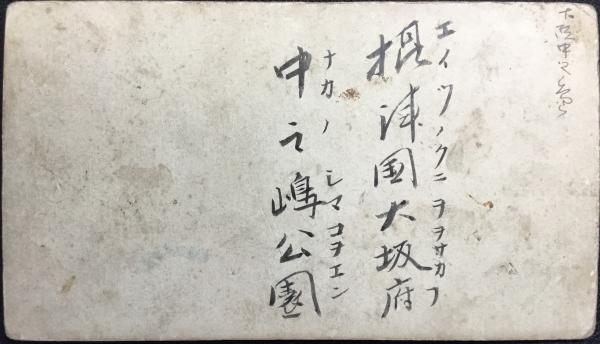 大阪中之島
エイツノクニヲヲサカフ
摂津国大坂府
ナカノシマコヲエン
中之嶋公園